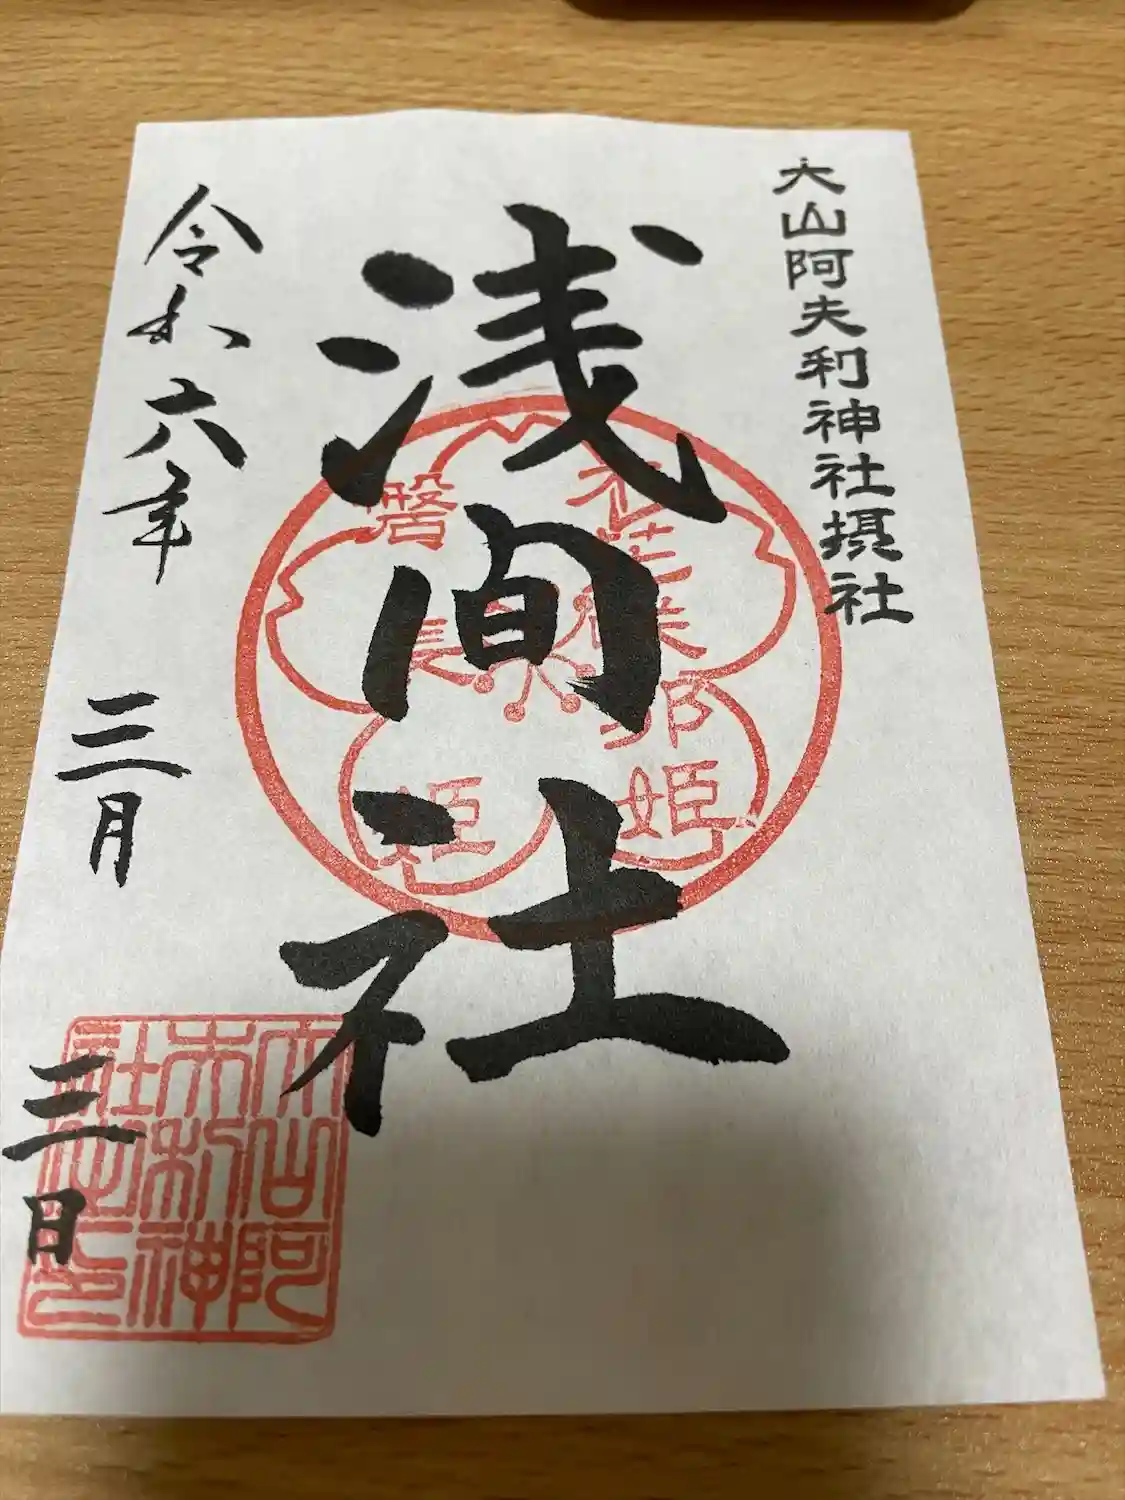 大山阿夫利神社摂社
浅间社
木花咲耶姫
磐長姫
令和六年
三月
三日
大山阿
夫利神
社之印